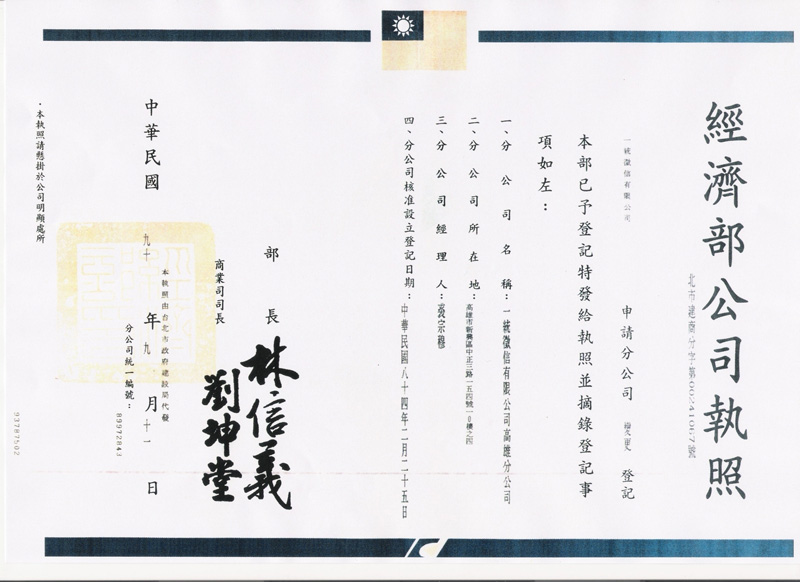 經濟部公司執照
北市建商分字第00241067號
一統徵信有限公司
申請分公司 變更 登記
本部已予登記特發給執照並摘錄登記事
項如左：
一、分公司名稱：一統徵信有限公司高雄分公司
二、分公司所在地：高雄市新興區中正三路一五四號一0樓之四
三、分公司經理人：裘宗雞
四、分公司核准設立登記日期：中華民國八十四年二月二十五日
部長 林信義
商業司司長 劉坤堂
本執照由台北市政府建設局代發
中華民國 九十 年 九 月 十一 日
分公司統一編號：89972843
．本執照請懸掛於公司明顯處所
93787502